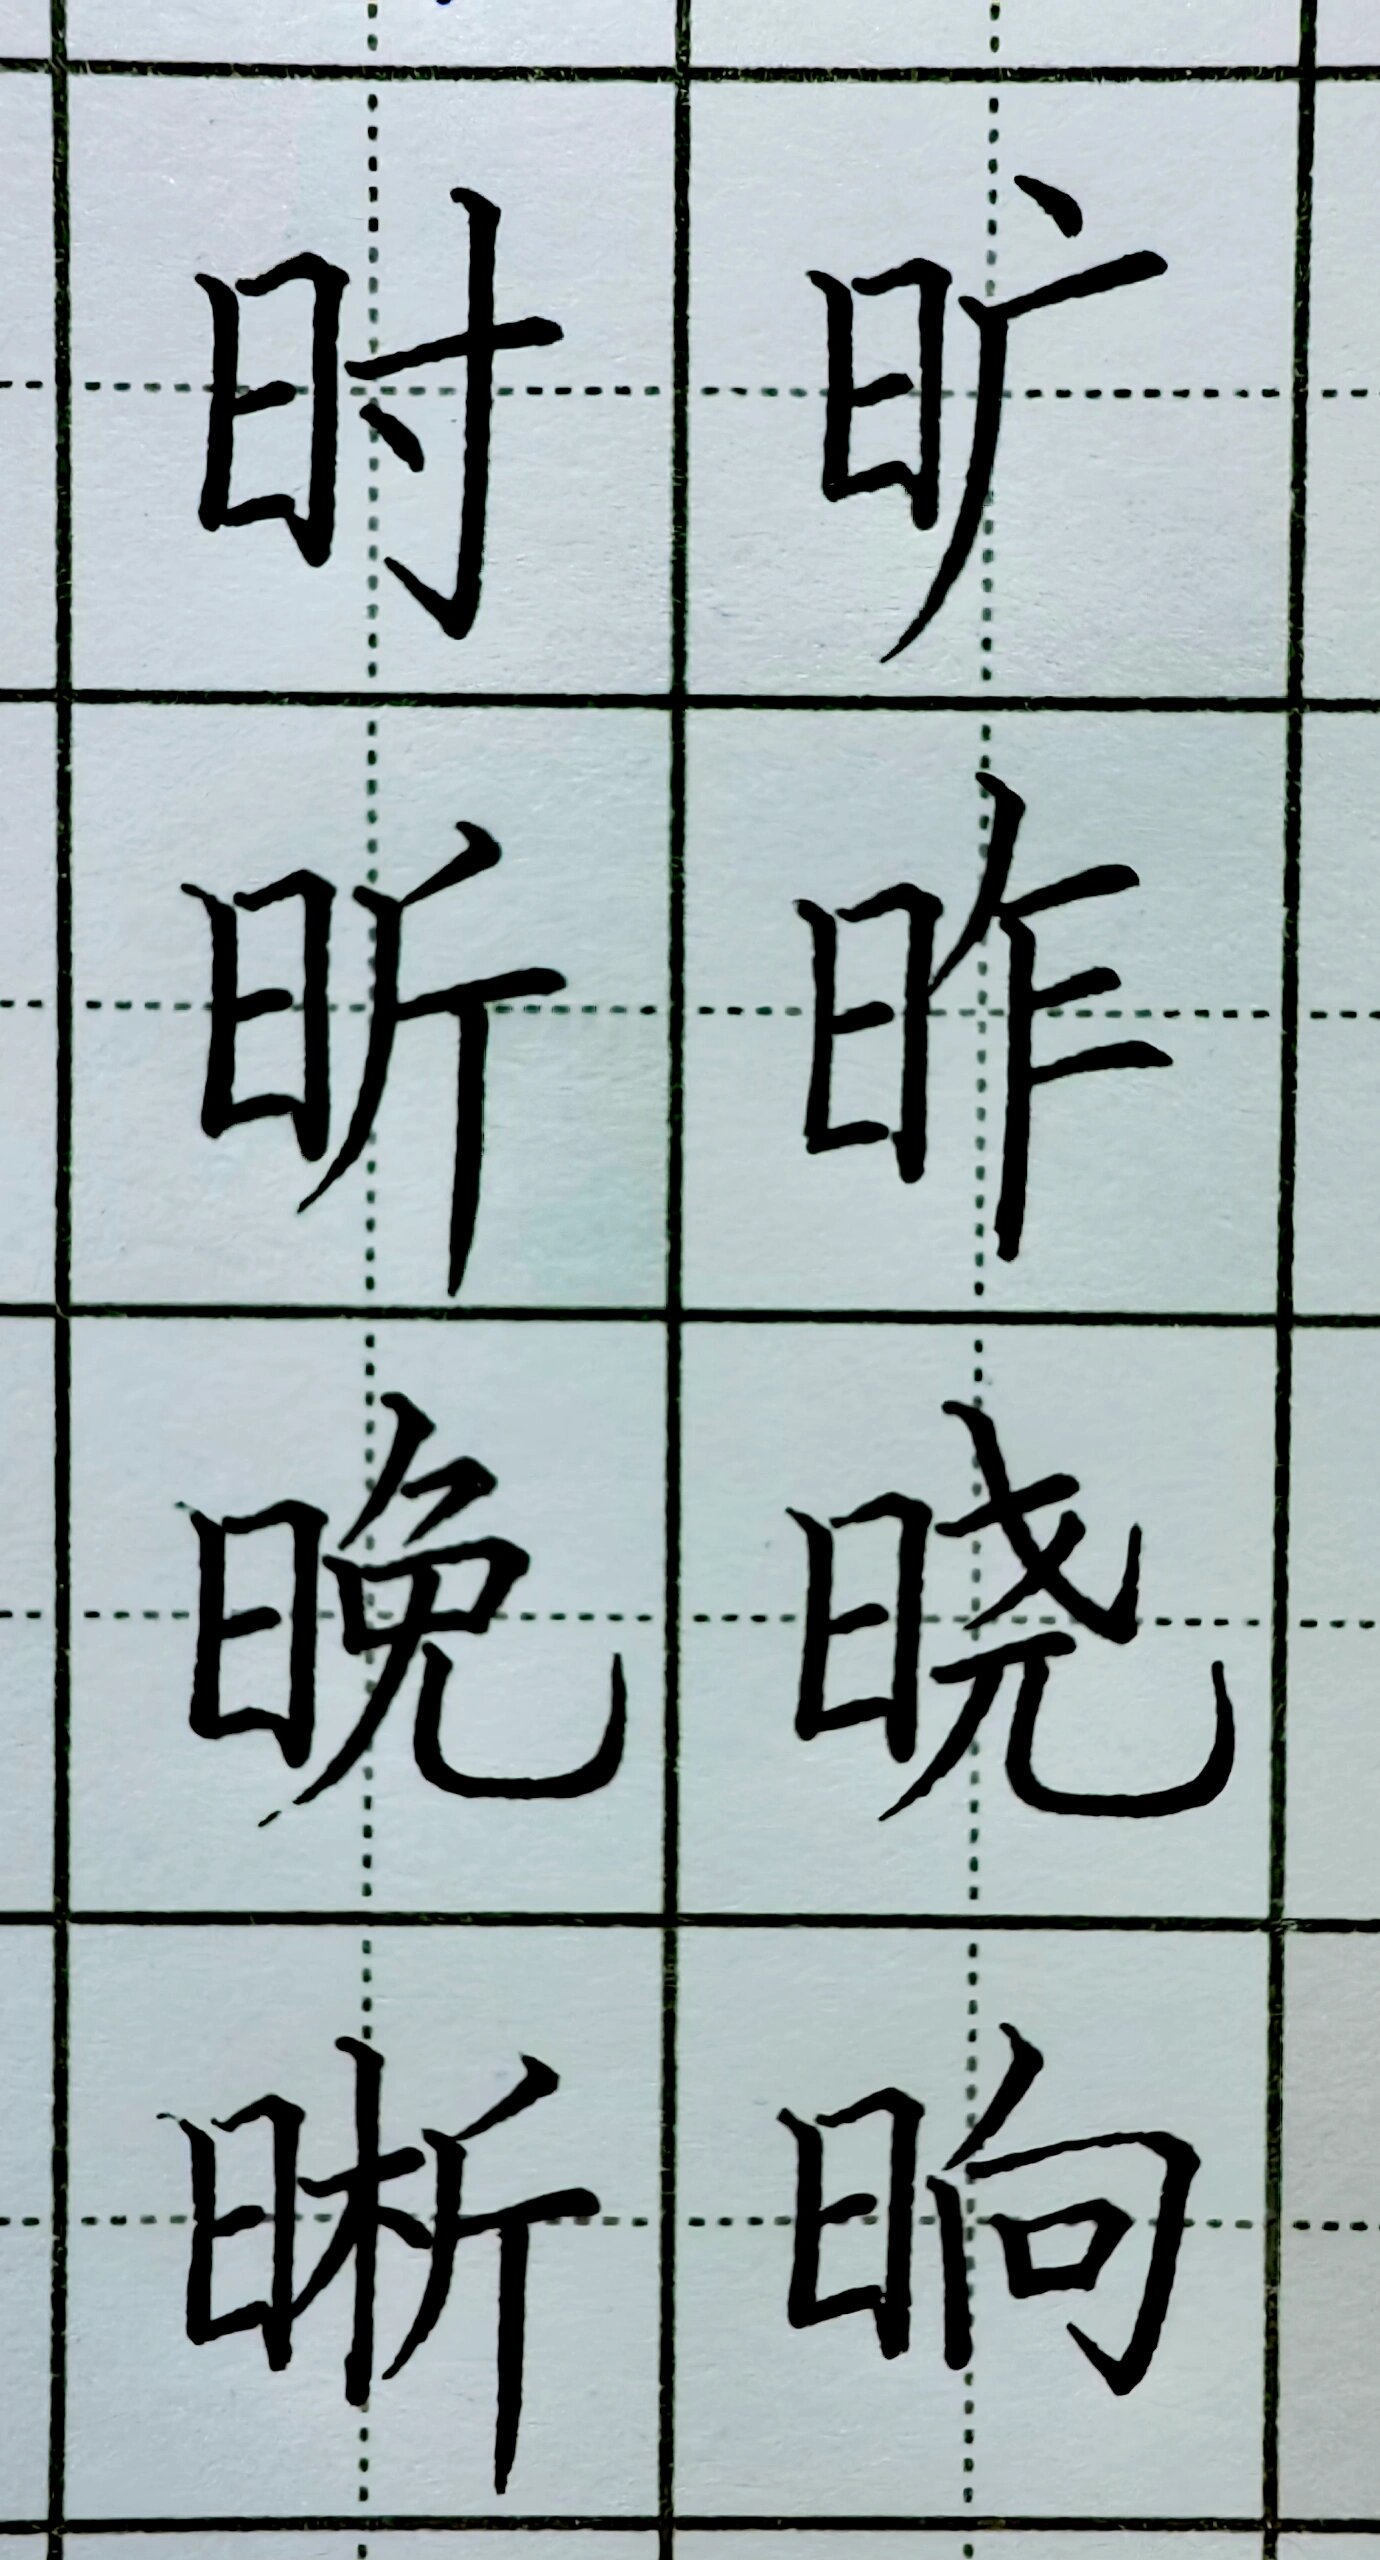 时旷
昕昨
晚晓
晰晌